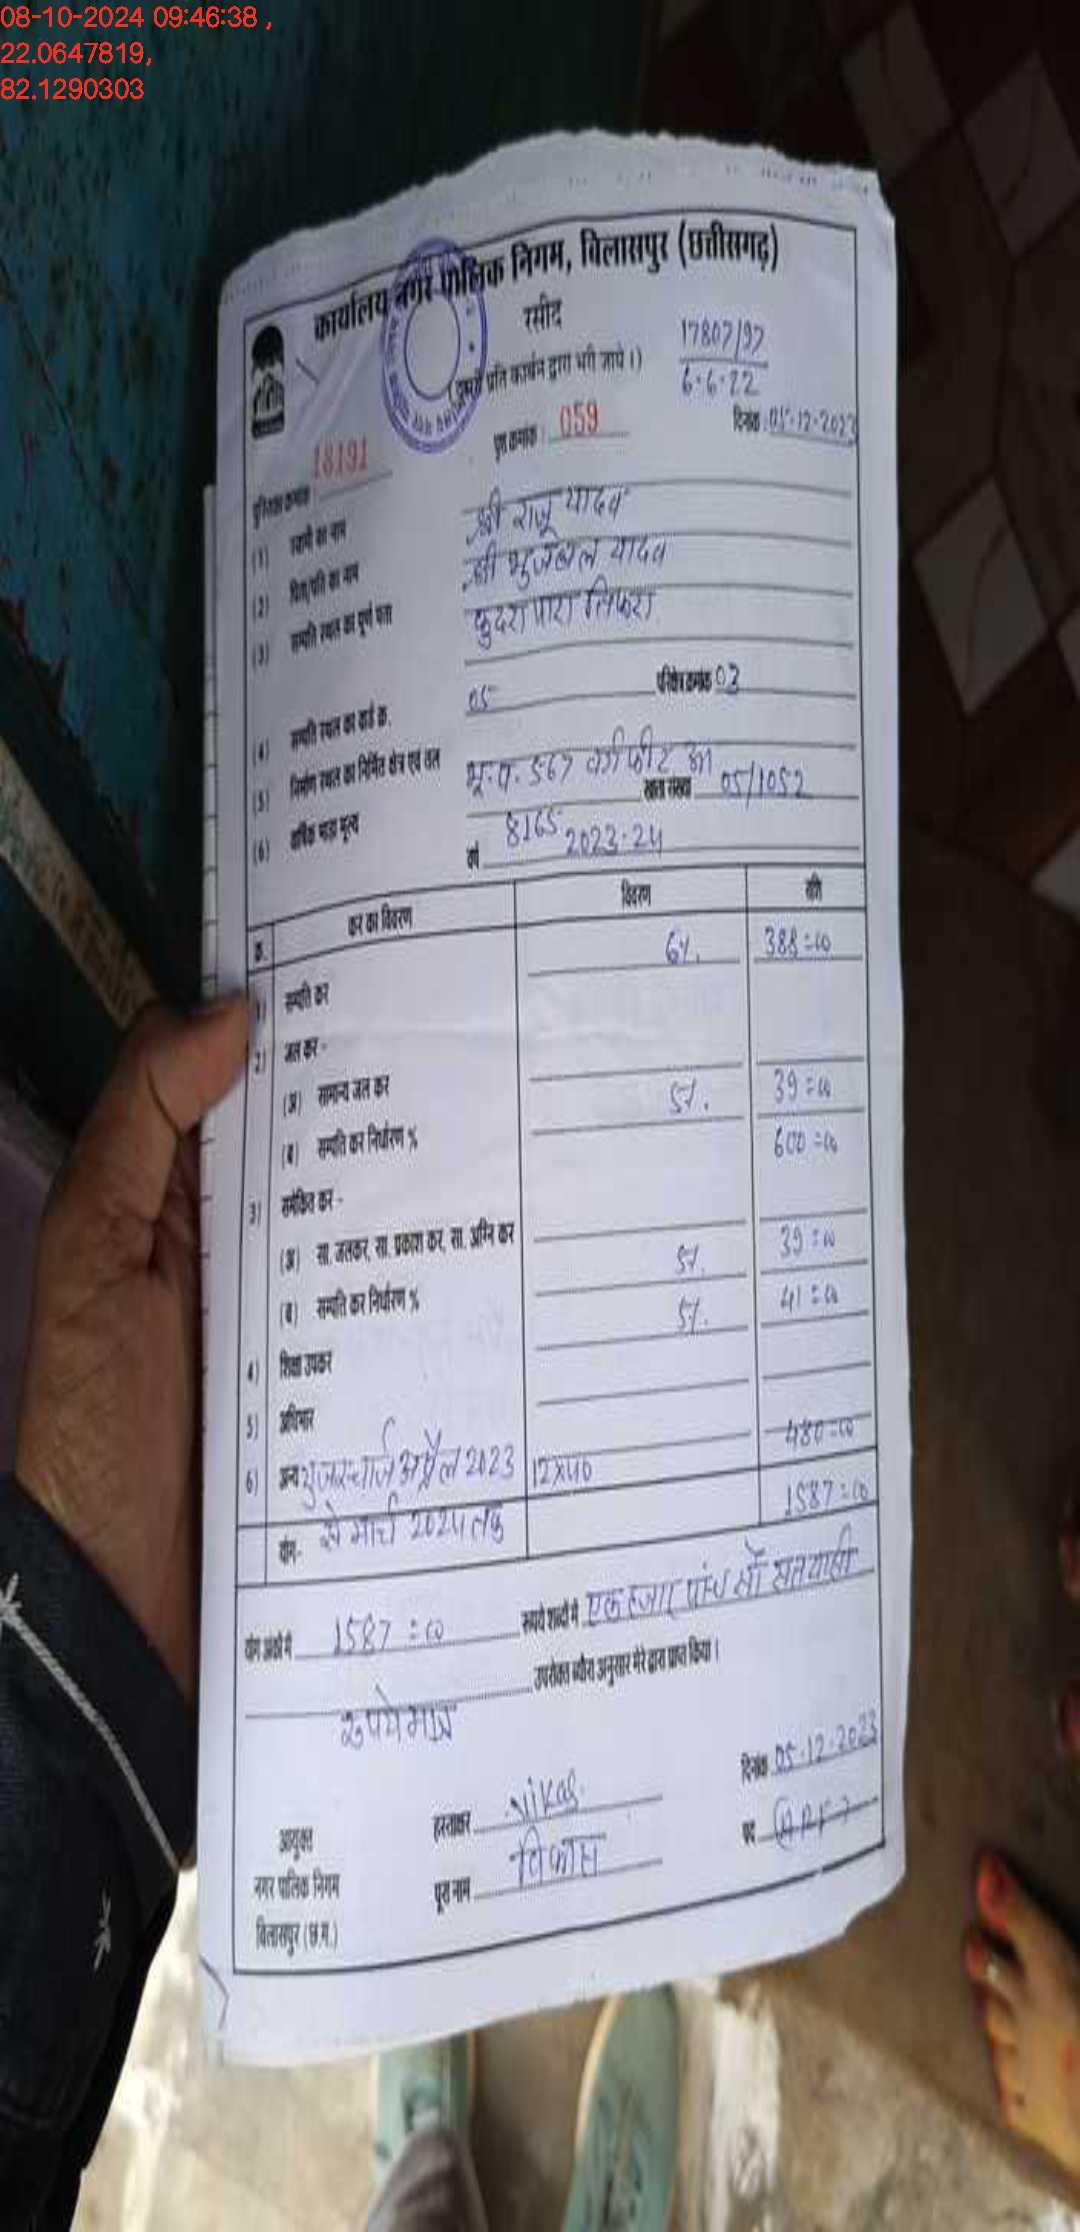 08-10-2024 09:46:38 ,
22.0647819,
82.1290303
कार्यालय नगर पालिक निगम, बिलासपुर (छत्तीसगढ़)
रसीद
17807/97
6.6.22
प्रति कार्बन द्वारा भरी जाये।)
पुस्तिका क्रमांक 18191 पृष्ठ क्रमांक : 059 दिनांक : 05.12.2023
(1) स्वामी का नाम श्री राजू यादव
(2) पिता/पति का नाम श्री भुजबल यादव
(3) सम्पति स्थल का पूर्ण पता कुदरा पारा तिफरा
(4) सम्पति स्थल का वार्ड क्र. 05 परिक्षेत्र क्रमांक 03
(5) निर्माण स्थल का निर्मित क्षेत्र एवं तल भू.त. 567 वर्ग फीट
(6) वार्षिक भाड़ा मूल्य 8165 खाता संख्या 05/1052
वर्ष 2023-24
क्र. कर का विवरण विवरण राशि
1) सम्पति कर 6%. 388=00
2) जल कर -
(अ) सामान्य जल कर
(ब) सम्पति कर निर्धारण % 5%. 39=00
3) समेकित कर - 600=00
(अ) सा. जलकर, सा. प्रकाश कर, सा. अग्नि कर
(ब) सम्पति कर निर्धारण % 5%. 39=00
4) शिक्षा उपकर 5%. 41=00
5) अधिभार
6) अन्य युजरचार्ज अप्रैल 2023 12x40 480=00
योग- से मार्च 2024 तक 1587=00
योग अंकों में 1587=00 रूपये शब्दों में एक हजार पांच सौ सतयासी
रुपये मात्र उपरोक्त ब्यौरा अनुसार मेरे द्वारा प्राप्त किया।
दिनांक 05.12.2023
आयुक्त हस्ताक्षर Vikas पद
नगर पालिक निगम पूरा नाम विकास
बिलासपुर (छ.ग.)